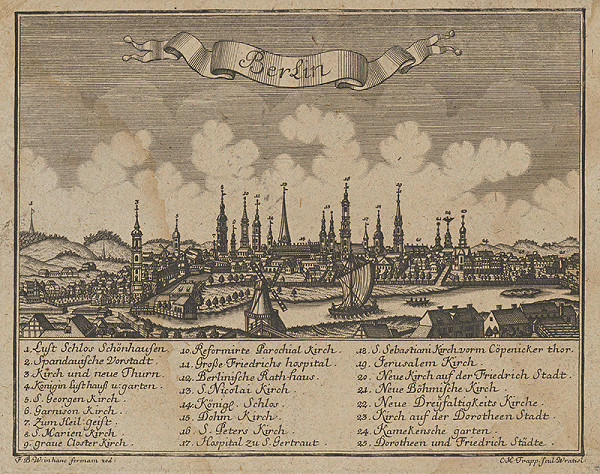 Berlin
1. Lust Schlos Schönhausen
2. Spandauische Vorstadt
3. Kirch und neue Thurn.
4. Königin lusthauß u: garten.
5. S. Georgen Kirch.
6. Garnison Kirch.
7. Zum Heil: geist.
8. S. Marien Kirch.
9. graue Closter Kirch.
10. Reformirte Parochial Kirch.
11. Große Friedrichs hospital.
12. Berlinische Rath-haus.
13. S. Nicolai Kirch.
14. König: Schlos
15. Dohm Kirch.
16. S. Peters Kirch.
17. Hospital zu S. Gertraut
18. S. Sebastiani Kirch vorm Cöpenicker thor.
19. Jerusalem Kirch.
20. Neue Kirch auf der Friedrich Stadt.
21. Neue Böhmische Kirch.
22. Neue Dreyfaltigkeits Kirche.
23. Kirch auf der Dorotheen Stadt.
24. Kamekensche garten.
25. Dorotheen und Friedrich Städte.
F. B. Werner